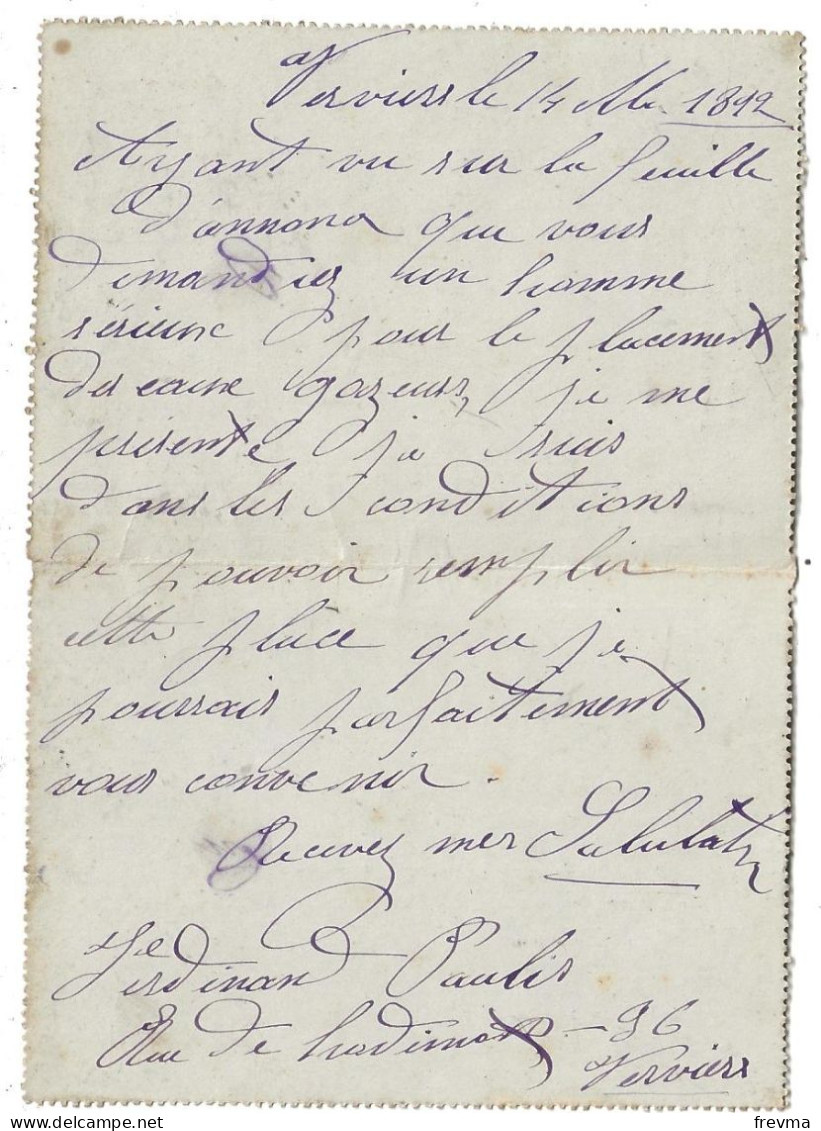 Verviers le 14 1892
Ayant vu sur la feuille
d'annonce que vous
demandiez un homme
sérieux pour le placement
des eaux gazeuses, je me
présente je suis
dans les conditions
de pouvoir remplir
cette place que je
pourrais parfaitement
vous convenir.
Recevez mes Salutat
Ferdinand Paulis
Rue de hodimont - 96
Verviers
frevma